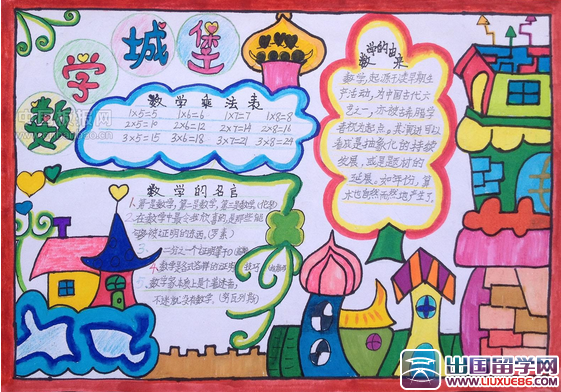 数学城堡
数学乘法表
1×5=5 1×6=6 1×7=7 1×8=8
2×5=10 2×6=12 2×7=14 2×8=16
3×5=15 3×6=18 3×7=21 3×8=24
学的由
数 来
数学,起源于人类早期生
产活动,为中国古代六
艺之一,亦被古希腊学
者视为
学之起点。其演进可以
看成是抽象化的持续
发展,或是题材的
延展。
术也自然而然地产生了。
数学的名言
1.第一是数学,第二是数学,第三是数学
2.在数学中最令我欣喜的,是那些能
够被证明的东西。(罗素)
3.一分之一个证明等于0
4.数学是各式各样的证明技巧
5.数学家本质上是个着迷者,
不迷就没有数学。(努瓦列斯)
出国留学网
WWW.LIUXUE86.COM